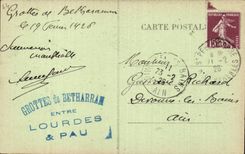 Grottes de Betharram
le 19 Février 1926
CARTE POSTALE
Souvenir
Monsieur
Gustave Richard
Divonne-les-Bains
Ain
GROTTES DE BETHARRAM
ENTRE
LOURDES
& PAU